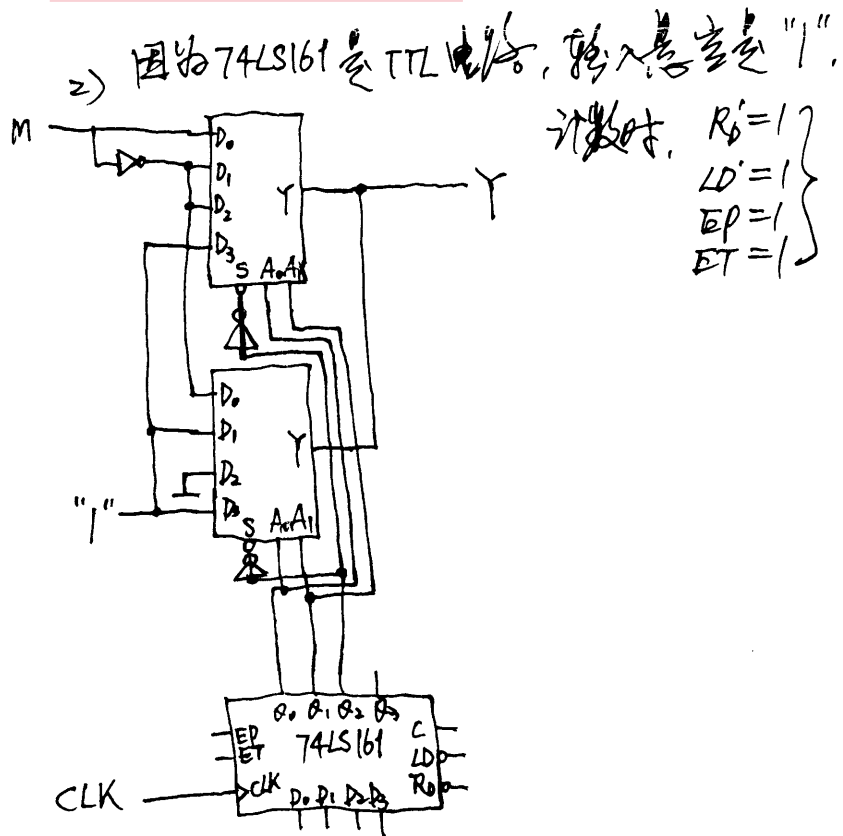 2) 因为74LS161是TTL电路, 输入悬空是"1".
计数时, R_D'=1
LD'=1
EP=1
ET=1
M
D₀
D₁
D₂
D₃
Y
S A₀ A₁
Y
D₀
D₁
D₂
D₃
Y
S A₀ A₁
"1"
Q₀ Q₁ Q₂ Q₃
EP
ET
74LS161
C
LD
R_D
CLK
CLK
D₀ D₁ D₂ D₃